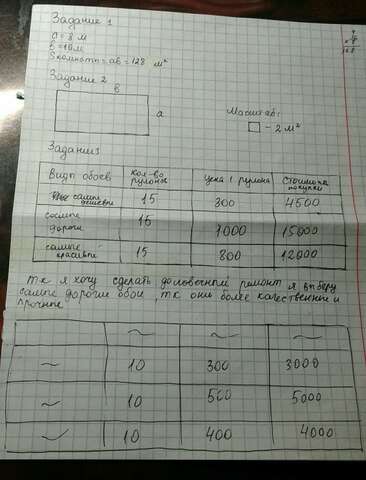 Задание 1
a = 8 м
b = 16 м
Sкомнаты = ab = 128 м²
Задание 2
b
a
Масштаб:
- 2 м²
Задание 3
Виды обоев Кол-во рулонов Цена 1 рулона Стоимость покупки
самые дешевые 15 300 4500
самые дороги 15 1000 15000
самые красивые 15 800 12000
тк я хочу сделать долговечный ремонт я выберу
самые дорогие обои, тк они более качественные и
прочные
~ ~ ~
~ 10 300 3000
~ 10 500 5000
~ 10 400 4000